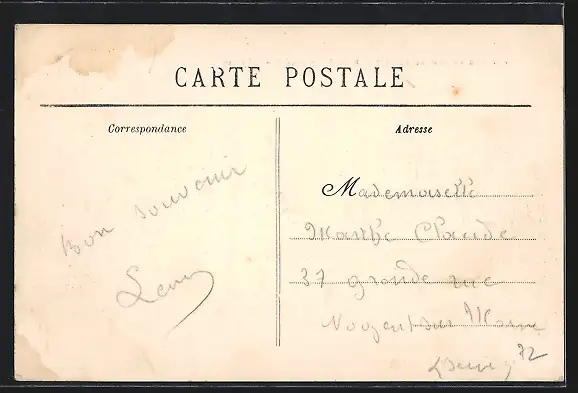 CARTE POSTALE
Correspondance
Adresse
Bon souvenir
Mademoiselle
Marthe Claude
37 grande rue
Nogent sur Marne